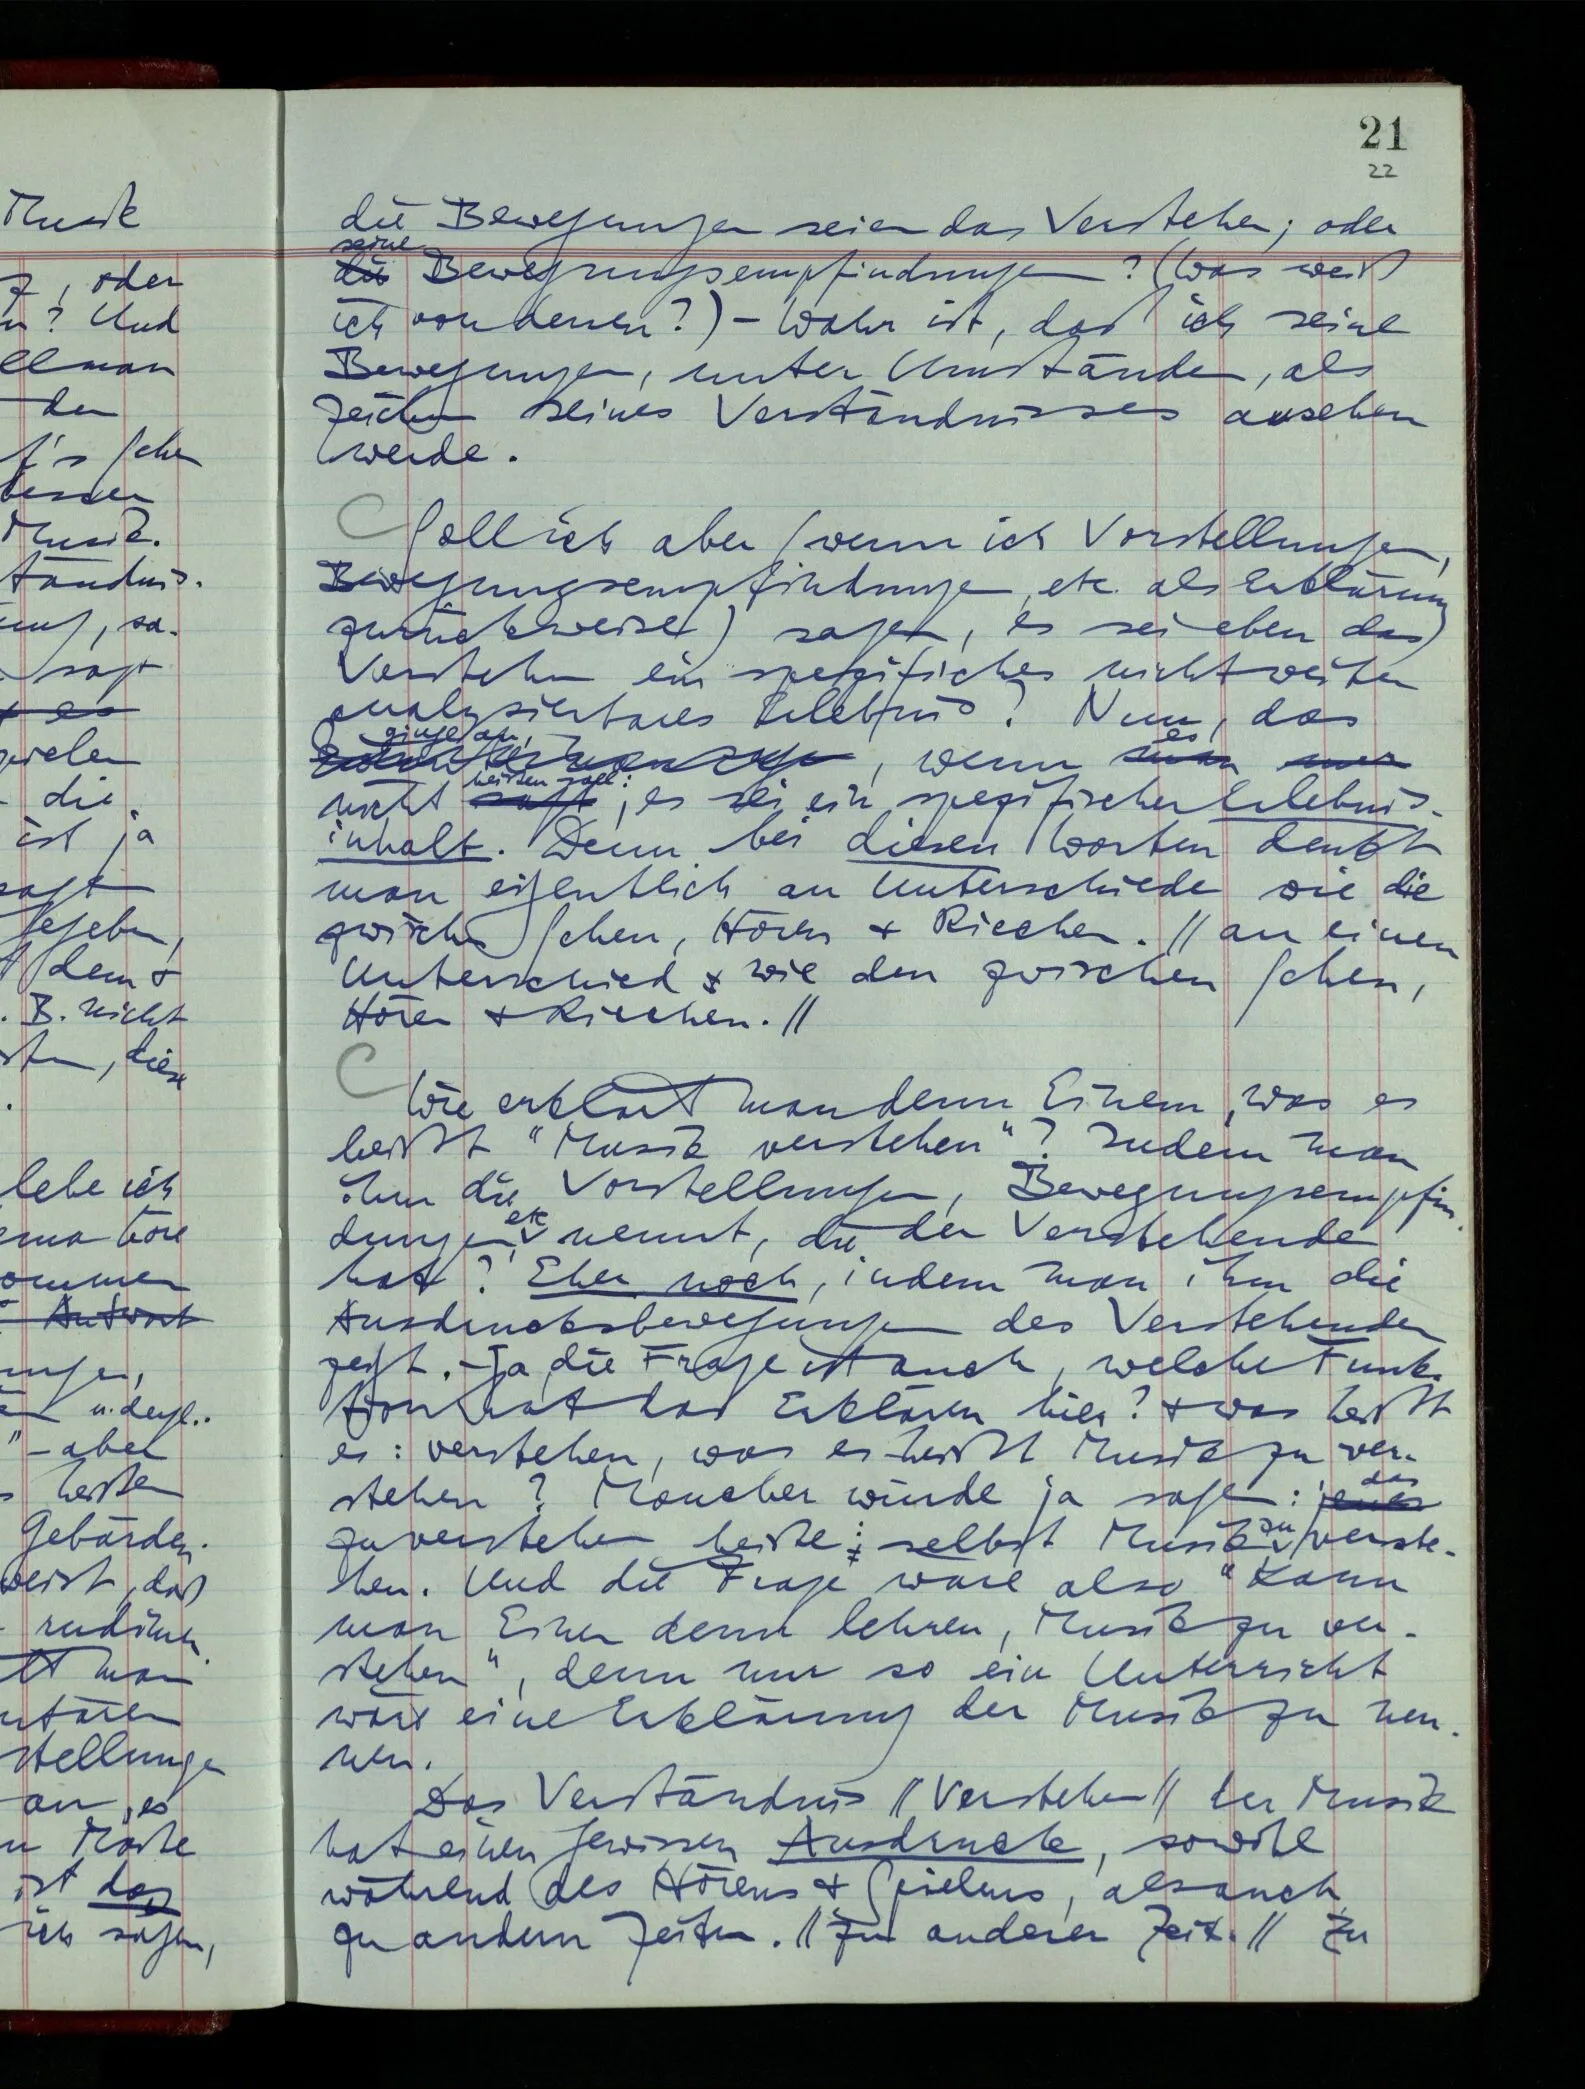 21
22
die Bewegungen seien das Verstehen; oder
seine
die Bewegungsempfindungen? (Was weiß
ich von denen?) – Wahr ist, daß ich seine
Bewegungen, unter Umständen, als
Zeichen seines Verständnisses ansehen
werde.
Soll ich aber (wenn ich Vorstellungen,
Bewegungsempfindungen, etc. als Erklärung
zurückweise) sagen, es sei eben das
Verstehen ein spezifisches nicht weiter
analysierbares Erlebnis? Nun, das
ginge an,
, wenn es
nicht heißen soll: es sei ein spezifischer Erlebnis-
inhalt. Denn bei diesen Worten denkt
man eigentlich an Unterschiede wie die
zwischen Sehen, Hören & Riechen. // an einen
Unterschied wie den zwischen Sehen,
Hören & Riechen. //
Wie erklärt man denn Einem, was es
heißt “Musik verstehen”? Indem man
ihm die Vorstellungen, Bewegungsempfin-
dungen, etc nennt, die der Verstehende
hat? Eher noch, indem man ihm die
Ausdrucksbewegungen des Verstehenden
zeigt. – Ja, die Frage ist auch, welche Funk-
tion hat das Erklären hier? & was heißt
es: verstehen, was es heißt Musik zu ver-
stehen? Mancher würde ja sagen: das
zu verstehen heiße: selbst Musik zu verste-
hen. Und die Frage wäre also “Kann
man Einen denn lehren, Musik zu ver-
stehen”, denn nur so ein Unterricht
wäre eine Erklärung der Musik zu nen-
nen.
Das Verständnis // Verstehen // der Musik
hat einen gewissen Ausdruck, sowohl
während des Hörens & Spielens, als auch
zu andern Zeiten. // zu anderer Zeit. // Zu
Musik
, oder
? Und
den
Sehen
besser
Musik.
sagt
die
ist ja
dem &
z. B. nicht
, diese
lebe ich
Antwort
u. dergl..
” – aber
heißen
Gebärden.
weist, daß
man
an, es
ist das
ich sagen,